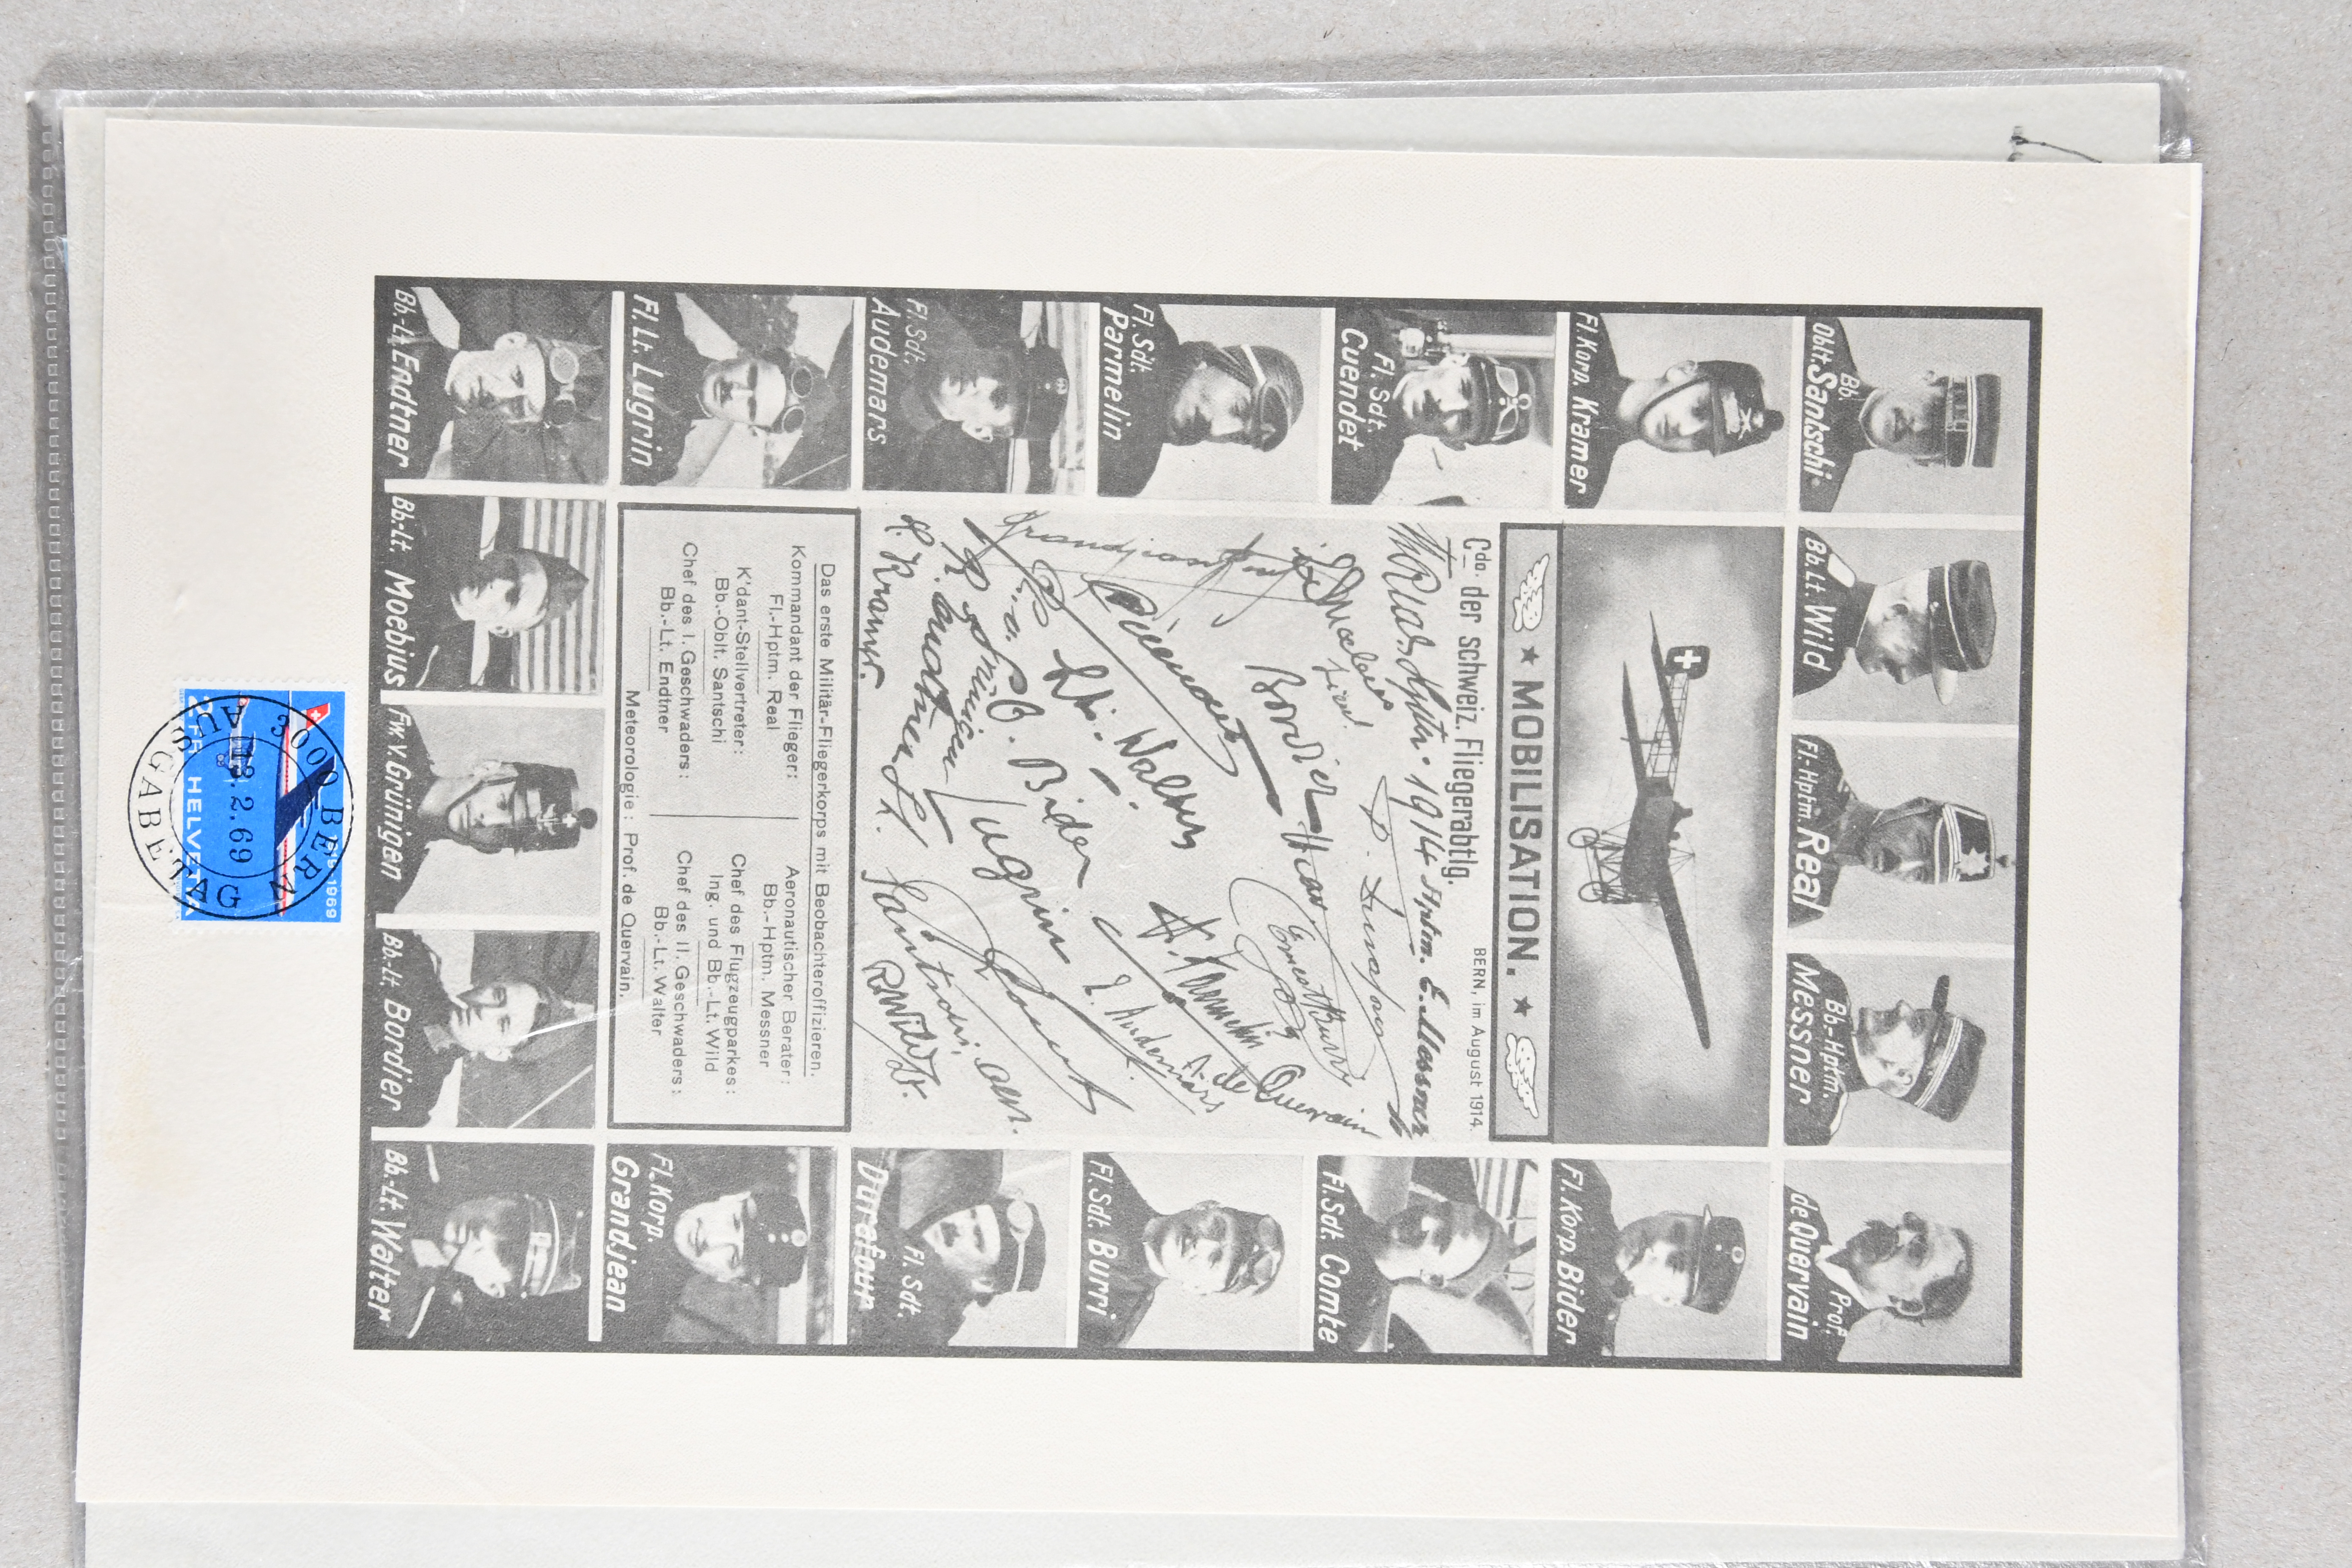 Bb. Oblt. Santschi
Bb. Lt. Wild
Fl.-Hptm. Real
Bb.-Hptm. Messner
Prof. de Quervain
Fl. Korp. Kramer
Fl. Korp. Bider
Fl. Sdt. Cuendet
Fl. Sdt. Comte
Fl. Sdt. Parmelin
Fl. Sdt. Burri
Fl. Sdt. Audemars
Fl. Sdt. Durafour
Fl. Lt. Lugrin
Fl. Korp. Grandjean
Bb.-Lt. Endtner
Bb.-Lt. Moebius
Fw. v. Grünigen
Bb.-Lt. Bordier
Bb.-Lt. Walter
★ MOBILISATION. ★
BERN, im August 1914.
Cdo. der schweiz. Fliegerabtlg.
Hptm. 1914 Hptm. E. Messner
D. Durafour
Bordier
Ernest Burri
Grandjean
A. de Quervain
Cuendet
A. Parmelin
Lt. Walter
E. Audemars
O. Bider
Lugrin
Endtner Lt.
Santschi, Oblt.
R. Wild Lt.
Kramer.
Das erste Militär-Fliegerkorps mit Beobachteroffizieren.
Kommandant der Flieger:
Fl.-Hptm. Real
K'dant-Stellvertreter:
Bb.-Oblt. Santschi
Chef des I. Geschwaders:
Bb.-Lt. Endtner
Aeronautischer Berater:
Bb.-Hptm. Messner
Chef des Flugzeugparkes:
Ing. und Bb.-Lt. Wild
Chef des II. Geschwaders:
Bb.-Lt. Walter
Meteorologie: Prof. de Quervain.
1969
HELVETIA
3000 BERN
13.2.69
AUSGABETAG